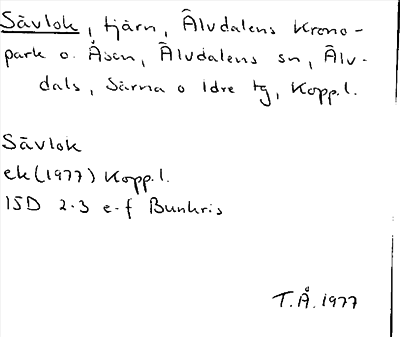 Sävlok, tjärn, Älvdalens Krono-
park o. Åsen, Älvdalens sn, Älv-
dals, Särna o Idre tg, Kopp.l.
Sävlok
ek (1977) Kopp.l.
15D 2-3 e-f Bunkris
T.Å. 1977